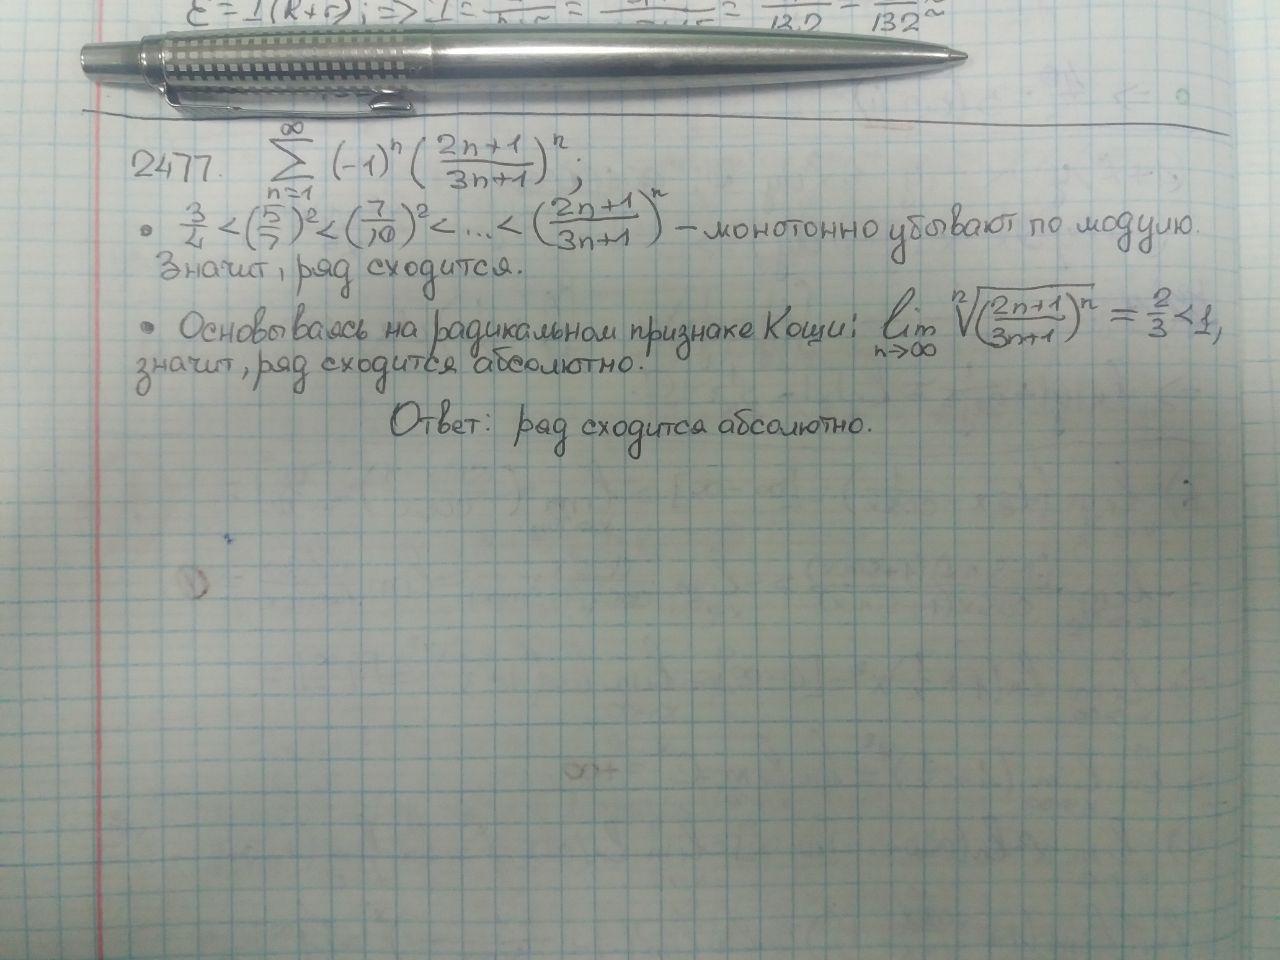 ε = I(R+r); => I =
132
2477. \sum_{n=1}^{∞} (-1)^n (\frac{2n+1}{3n+1})^n;
• \frac{3}{4} < (\frac{5}{7})^2 < (\frac{7}{10})^2 < ... < (\frac{2n+1}{3n+1})^n – монотонно убывают по модулю.
Значит, ряд сходится.
• Основываясь на радикальном признаке Коши: \lim_{n→∞} \sqrt[n]{(\frac{2n+1}{3n+1})^n} = \frac{2}{3} < 1,
значит, ряд сходится абсолютно.
Ответ: ряд сходится абсолютно.